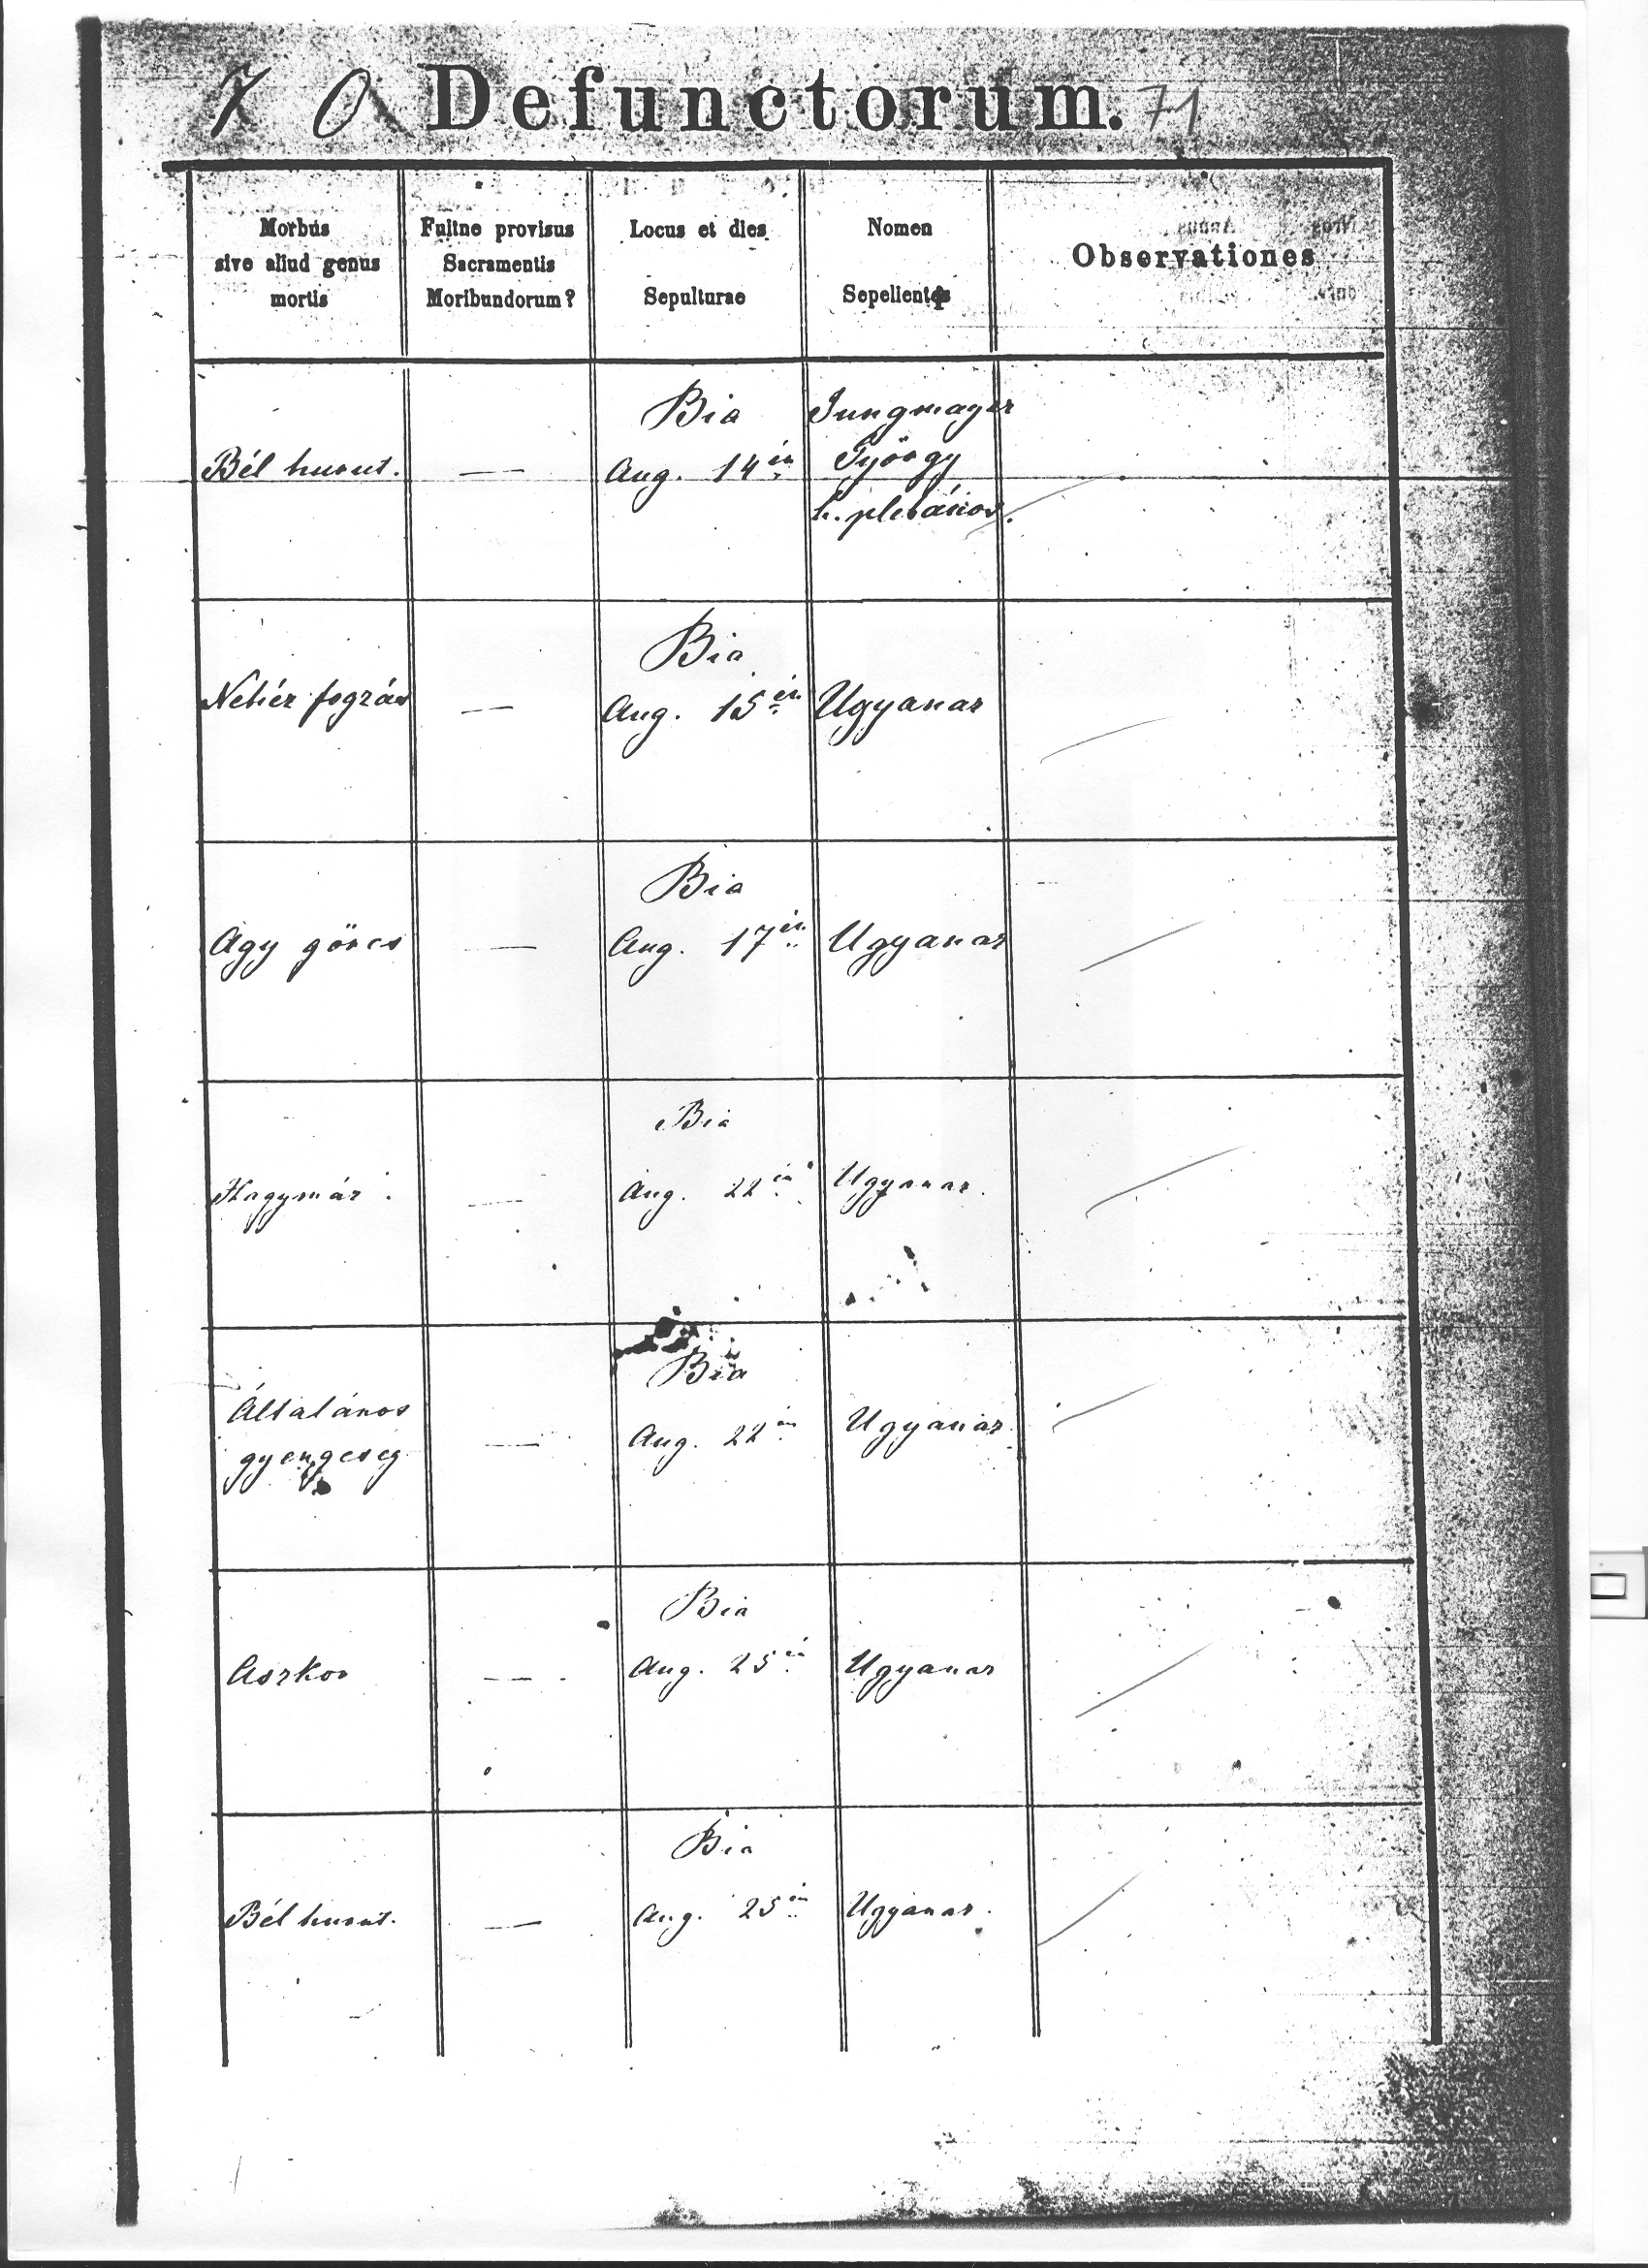 7 0 Defunctorum. 71
Morbus
sive aliud genus
mortis
Fuitne provisus
Sacramentis
Moribundorum?
Locus et dies
Sepulturae
Nomen
Sepelientis
Observationes
Bél hurut.
—
Bia
Aug. 14én
Jungmayer
György
h. plebános.
Nehéz fogzás
—
Bia
Aug. 15én
Ugyanaz
Agy görcs
—
Bia
Aug. 17én
Ugyanaz
Hagymáz.
—
Bia
Aug. 22én
Ugyanaz.
Általános
gyengeség
—
Bia
Aug. 22én
Ugyanaz.
Aszkor
—
Bia
Aug. 25én
Ugyanaz
Bél hurut.
—
Bia
Aug. 25én
Ugyanaz.